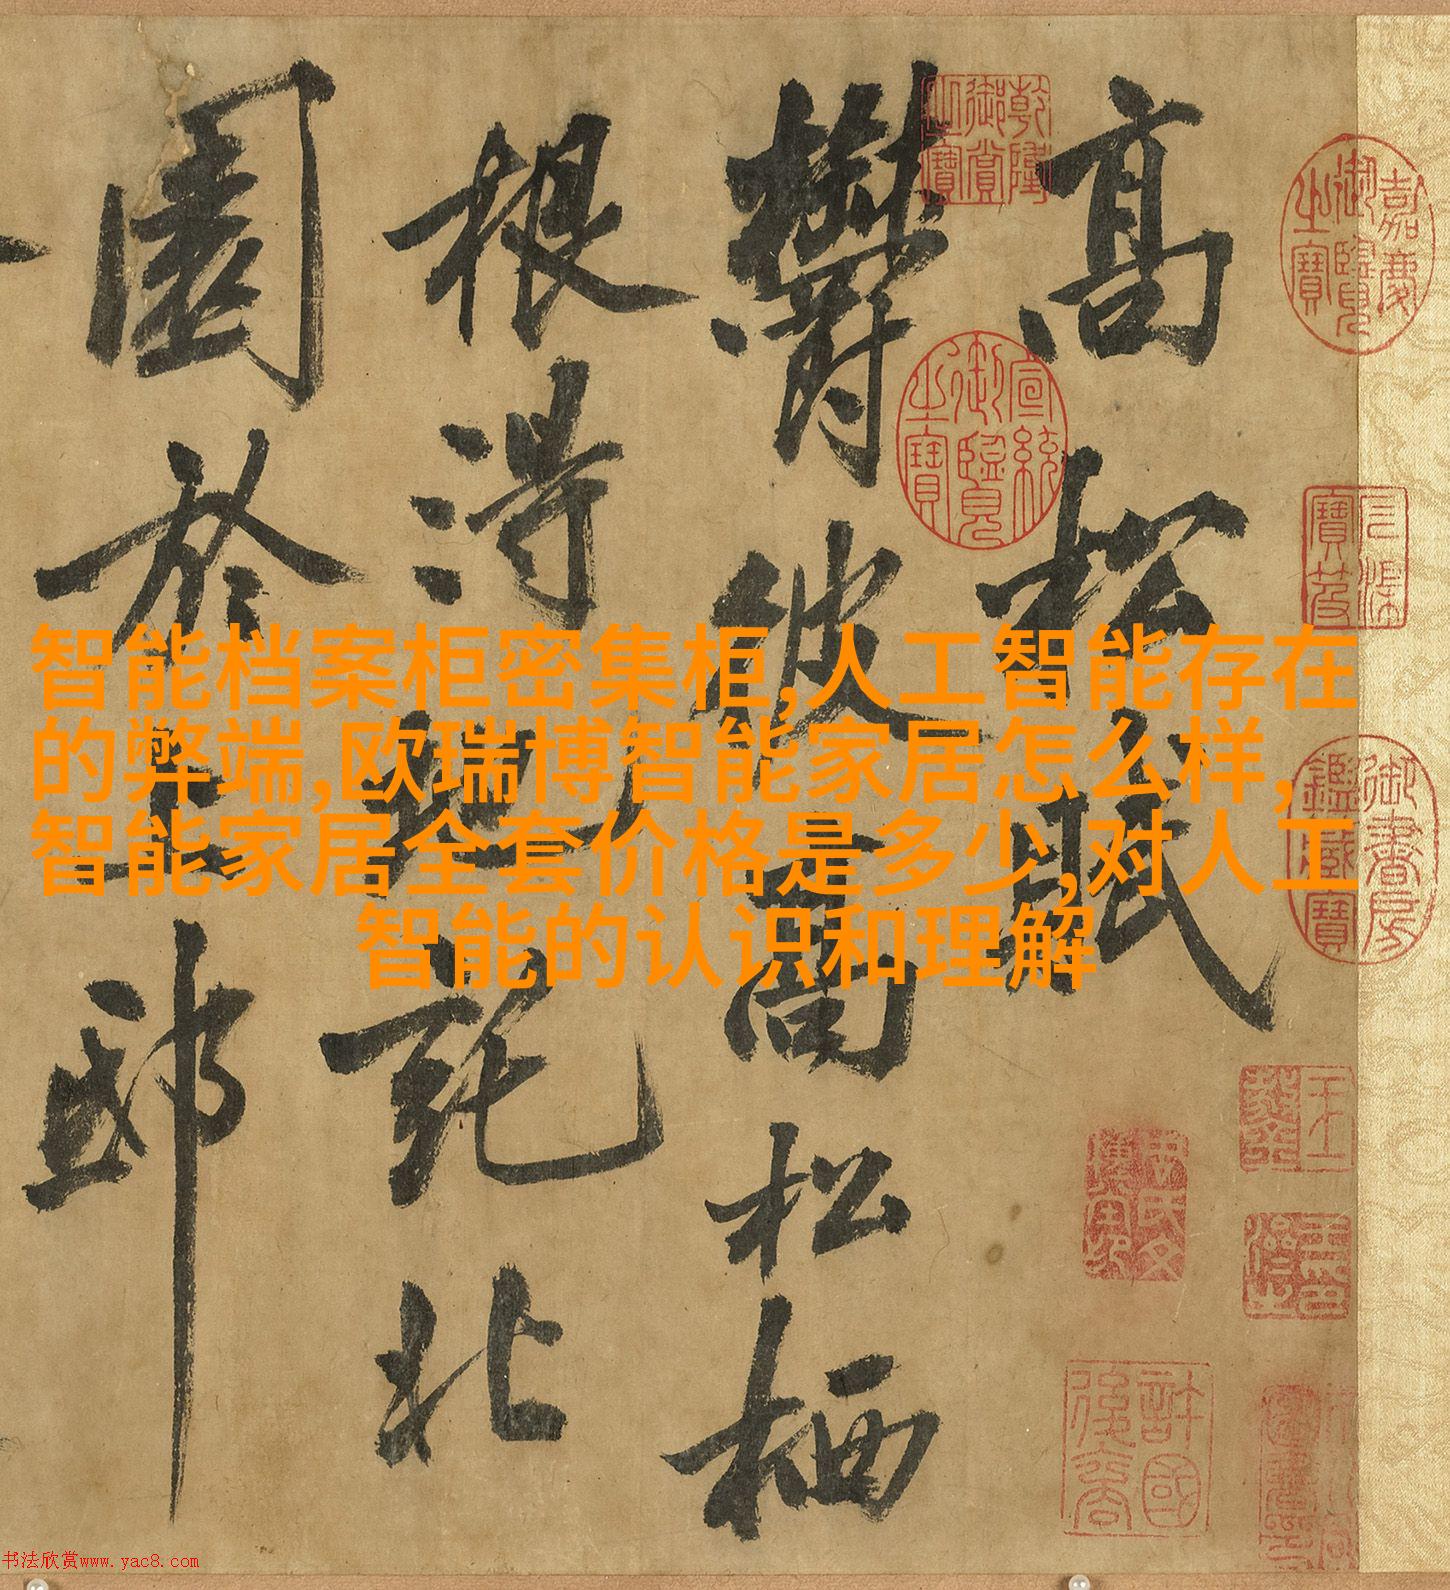 高松眠
欝彼高松栖
根得地死北
園於邸
乾隆御賞之寶
嘉慶御覽之寶
宣統御覽之寶
御書房鑑藏寶
許國後裔
智能档案柜密集柜,人工智能存在
的弊端,欧瑞博智能家居怎么样,
智能家居全套价格是多少,对人工
智能的认识和理解
书法欣赏www.yac8.com